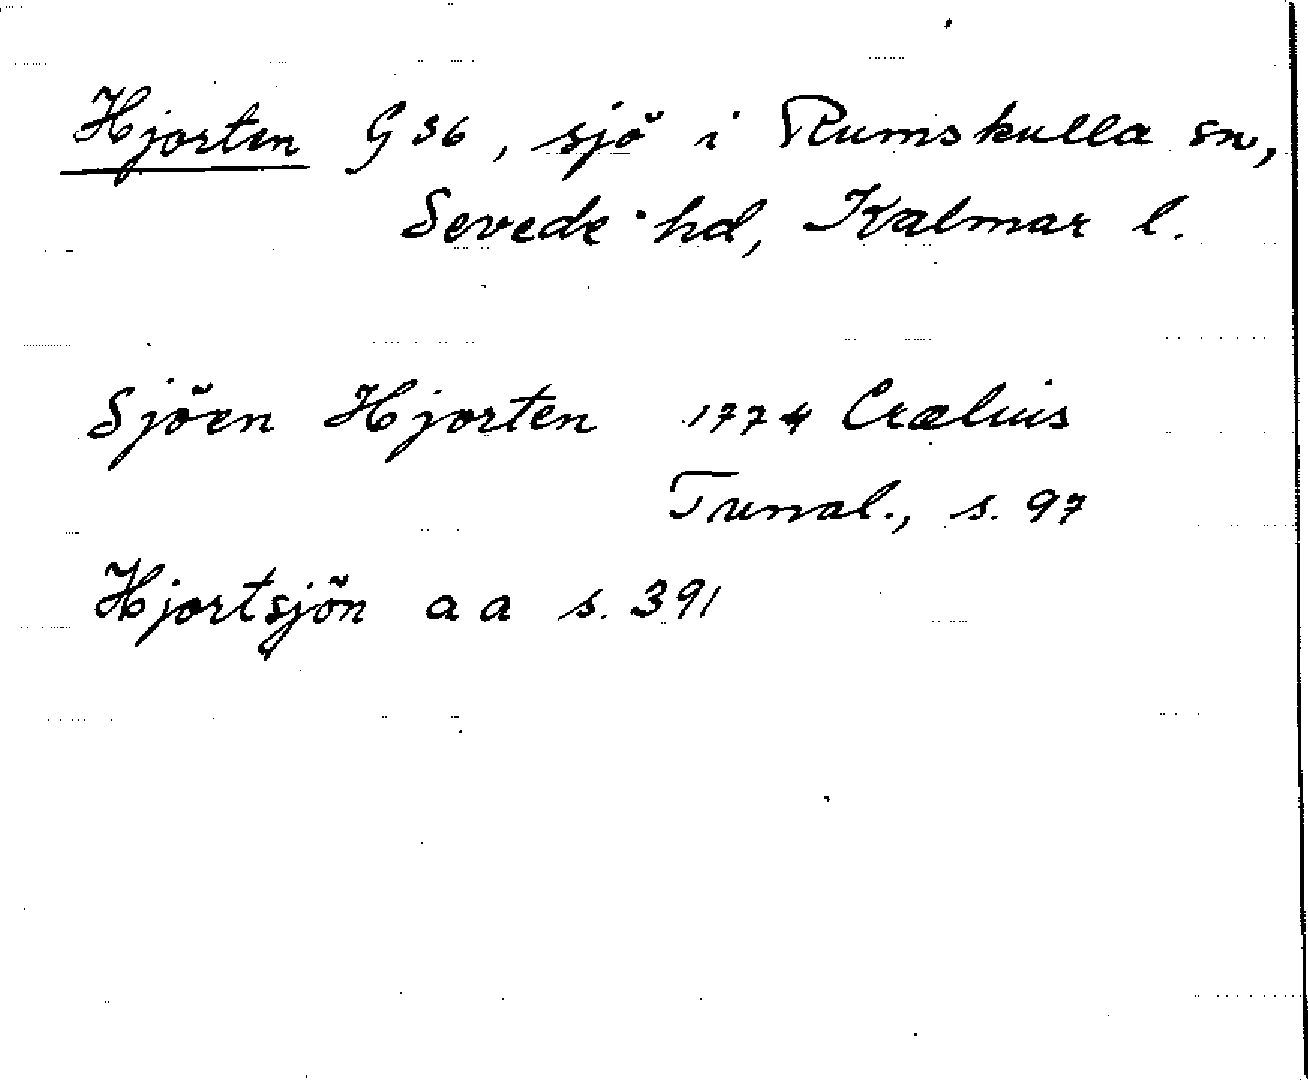 Hjorten G 36, sjö i Rumskulla sn,
Sevede hd, Kalmar l.
Sjöen Hjorten 1774 Crælius
Tunal., s. 97
Hjortsjön a a s. 391